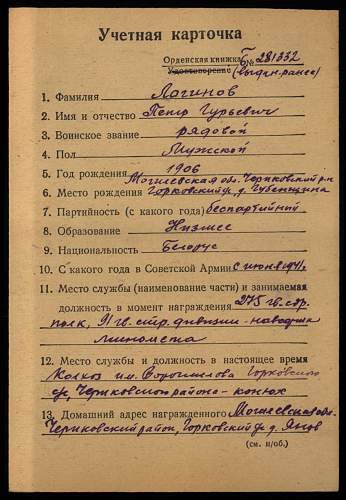 Учетная карточка
Орденская книжка Г № 281332
Удостоверение (выдан. ранее)
1. Фамилия Логинов
2. Имя и отчество Петр Гурьевич
3. Воинское звание рядовой
4. Пол Мужской
5. Год рождения 1906
Могилевская обл. Чериковский р-н
6. Место рождения Горковский с/с д. Губенщина
7. Партийность (с какого года) беспартийный
8. Образование Низшее
9. Национальность Белорус
10. С какого года в Советской Армии с июня 1941 г.
11. Место службы (наименование части) и занимаемая
должность в момент награждения 275 гв. стр.
полк, 91 гв. стр. дивизии - наводчик
миномета
12. Место службы и должность в настоящее время
Колхоз им. Ворошилова Горковского
с/с, Чериковского района - конюх
13. Домашний адрес награжденного Могилевская обл.
Чериковский район, Горковский с/с д.
(см. н/об.)